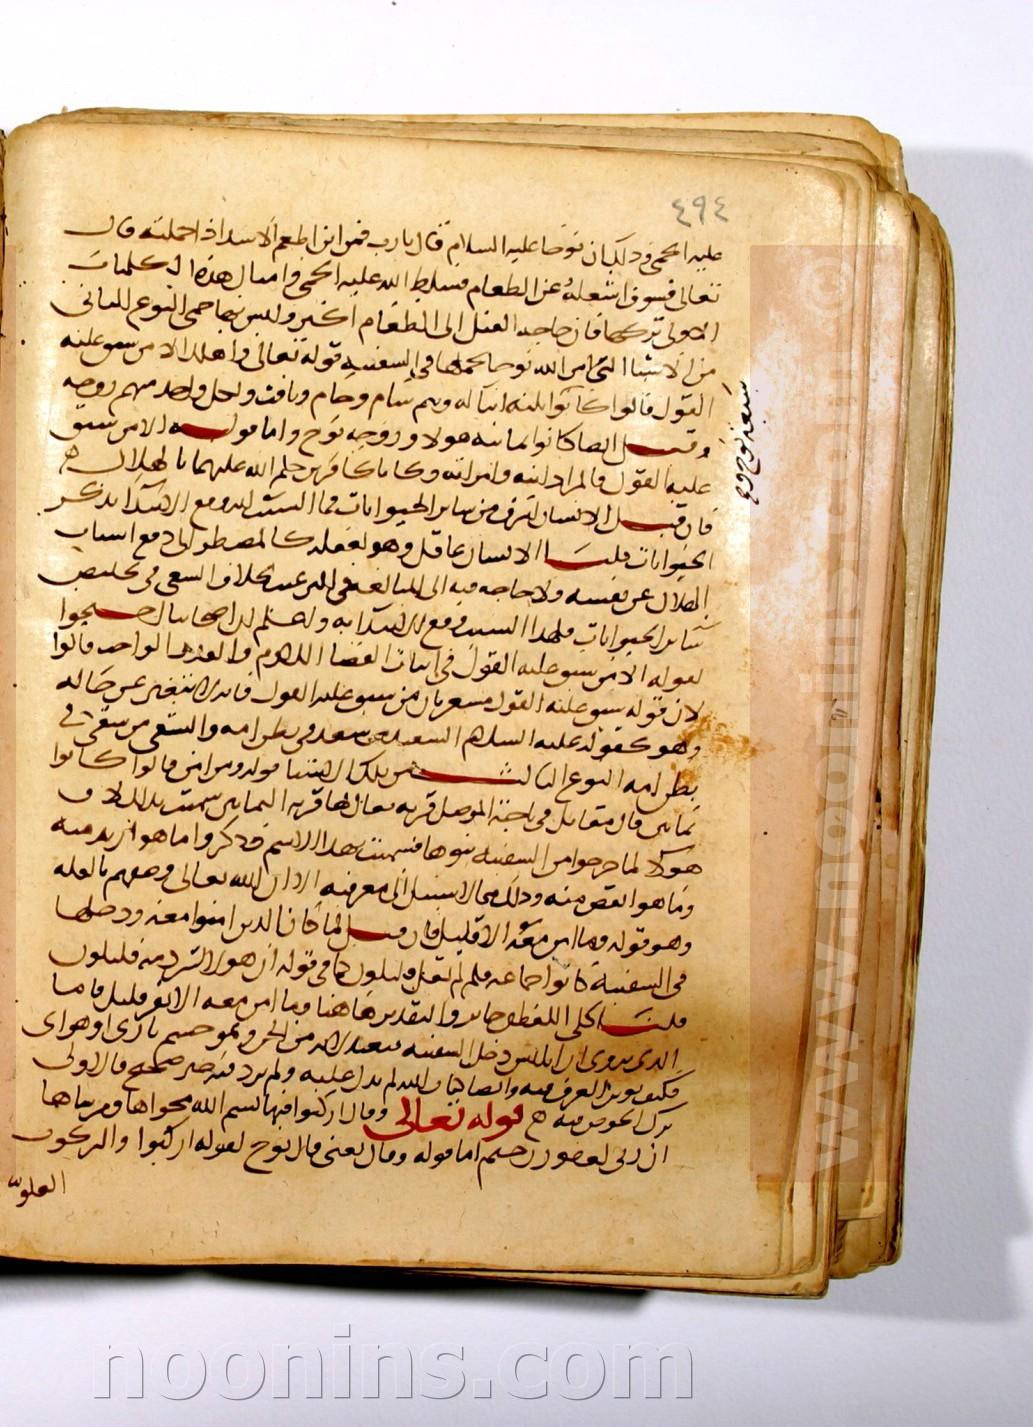 ٤٩٤
عليه الحمى وذلك ان نوحا عليه السلام قال يا رب فمن اين اطعم الاسد اذا حملته قال
تعالى فسوف اشغله عن الطعام فسلط الله عليه الحمى وامثال هذه الكلمات
الاولى تركها فان حاجه الفيل الى الطعام اكثر وليس بها حمى النوع الثاني
من الاشيا التي امر الله نوحا بحملها في السفينه قوله تعالى واهلك الا من سبق عليه
القول قالوا كانوا ثلثه ابنا له وهم سام وحام ويافث ولكل واحد منهم زوجه
وقيل ايضا كانوا ثمانيه هولا وزوجه نوح واما قوله الا من سبق
عليه القول فالمراد ابنه وامراته وكانا كافرين حكم الله عليهما بالهلاك
فان قيل الانسان اشرف من ساير الحيوانات فما السبب انه وقع الابتدا بذكر
الحيوانات قلنا الانسان عاقل وهو لعقله كالمضطر الى دفع اسباب
الهلاك عن نفسه ولا حاجه فيه الى المبالغه في الترغيب بخلاف السعي في تخليص
ساير الحيوانات فلهذا السبب وقع الابتدا به واعلم ان اصحابنا احتجوا
بقوله الا من سبق عليه القول في اثبات القضا اللازم والقدر الواجب قالوا
لان قوله سبق عليه القول مشعر بان من سبق عليه القول فانه لا يتغير عن حاله
وهو كقوله عليه السلام السعيد من سعد في بطن امه والشقي من شقي في
بطن امه النوع الثالث من تلك الاشيا قوله ومن امن قالوا كانوا
ثمانين قال مقاتل في ناحية الموصل قريه يقال لها قريه الثمانين سميت بذلك لان
هولا لما خرجوا من السفينه بنوها فسميت بهذا الاسم وذكروا ما هو ازيد منه
وما هو انقص منه وذلك مما لا سبيل الى معرفته الا ان الله تعالى وصفهم بالقله
وهو قوله وما امن معه الا قليل فان قيل لما كان الذين امنوا معه ودخلوا
في السفينة كانوا جماعه فلم لم يقل قليلون كما في قوله ان هولا لشرذمه قليلون
قلنا كلى اللفظين جايز والتقدير هاهنا وما امن معه الا نفر قليل فاما
الذي يروى ان ابليس دخل السفينه فبعيد لانه من الجن وهو جسم ناري او هوائي
فكيف يوثر الغرق فيه وايضا كتاب الله لم يدل عليه ولم يرد فيه خبر صحيح فالاولى
ترك الخوض فيه ه قوله تعالى وقال اركبوا فيها بسم الله مجراها ومرساها
ان ربي لغفور رحيم اما قوله وقال يعني قال نوح لقومه اركبوا والركوب
العلو
www.noonins.com
noonins.com